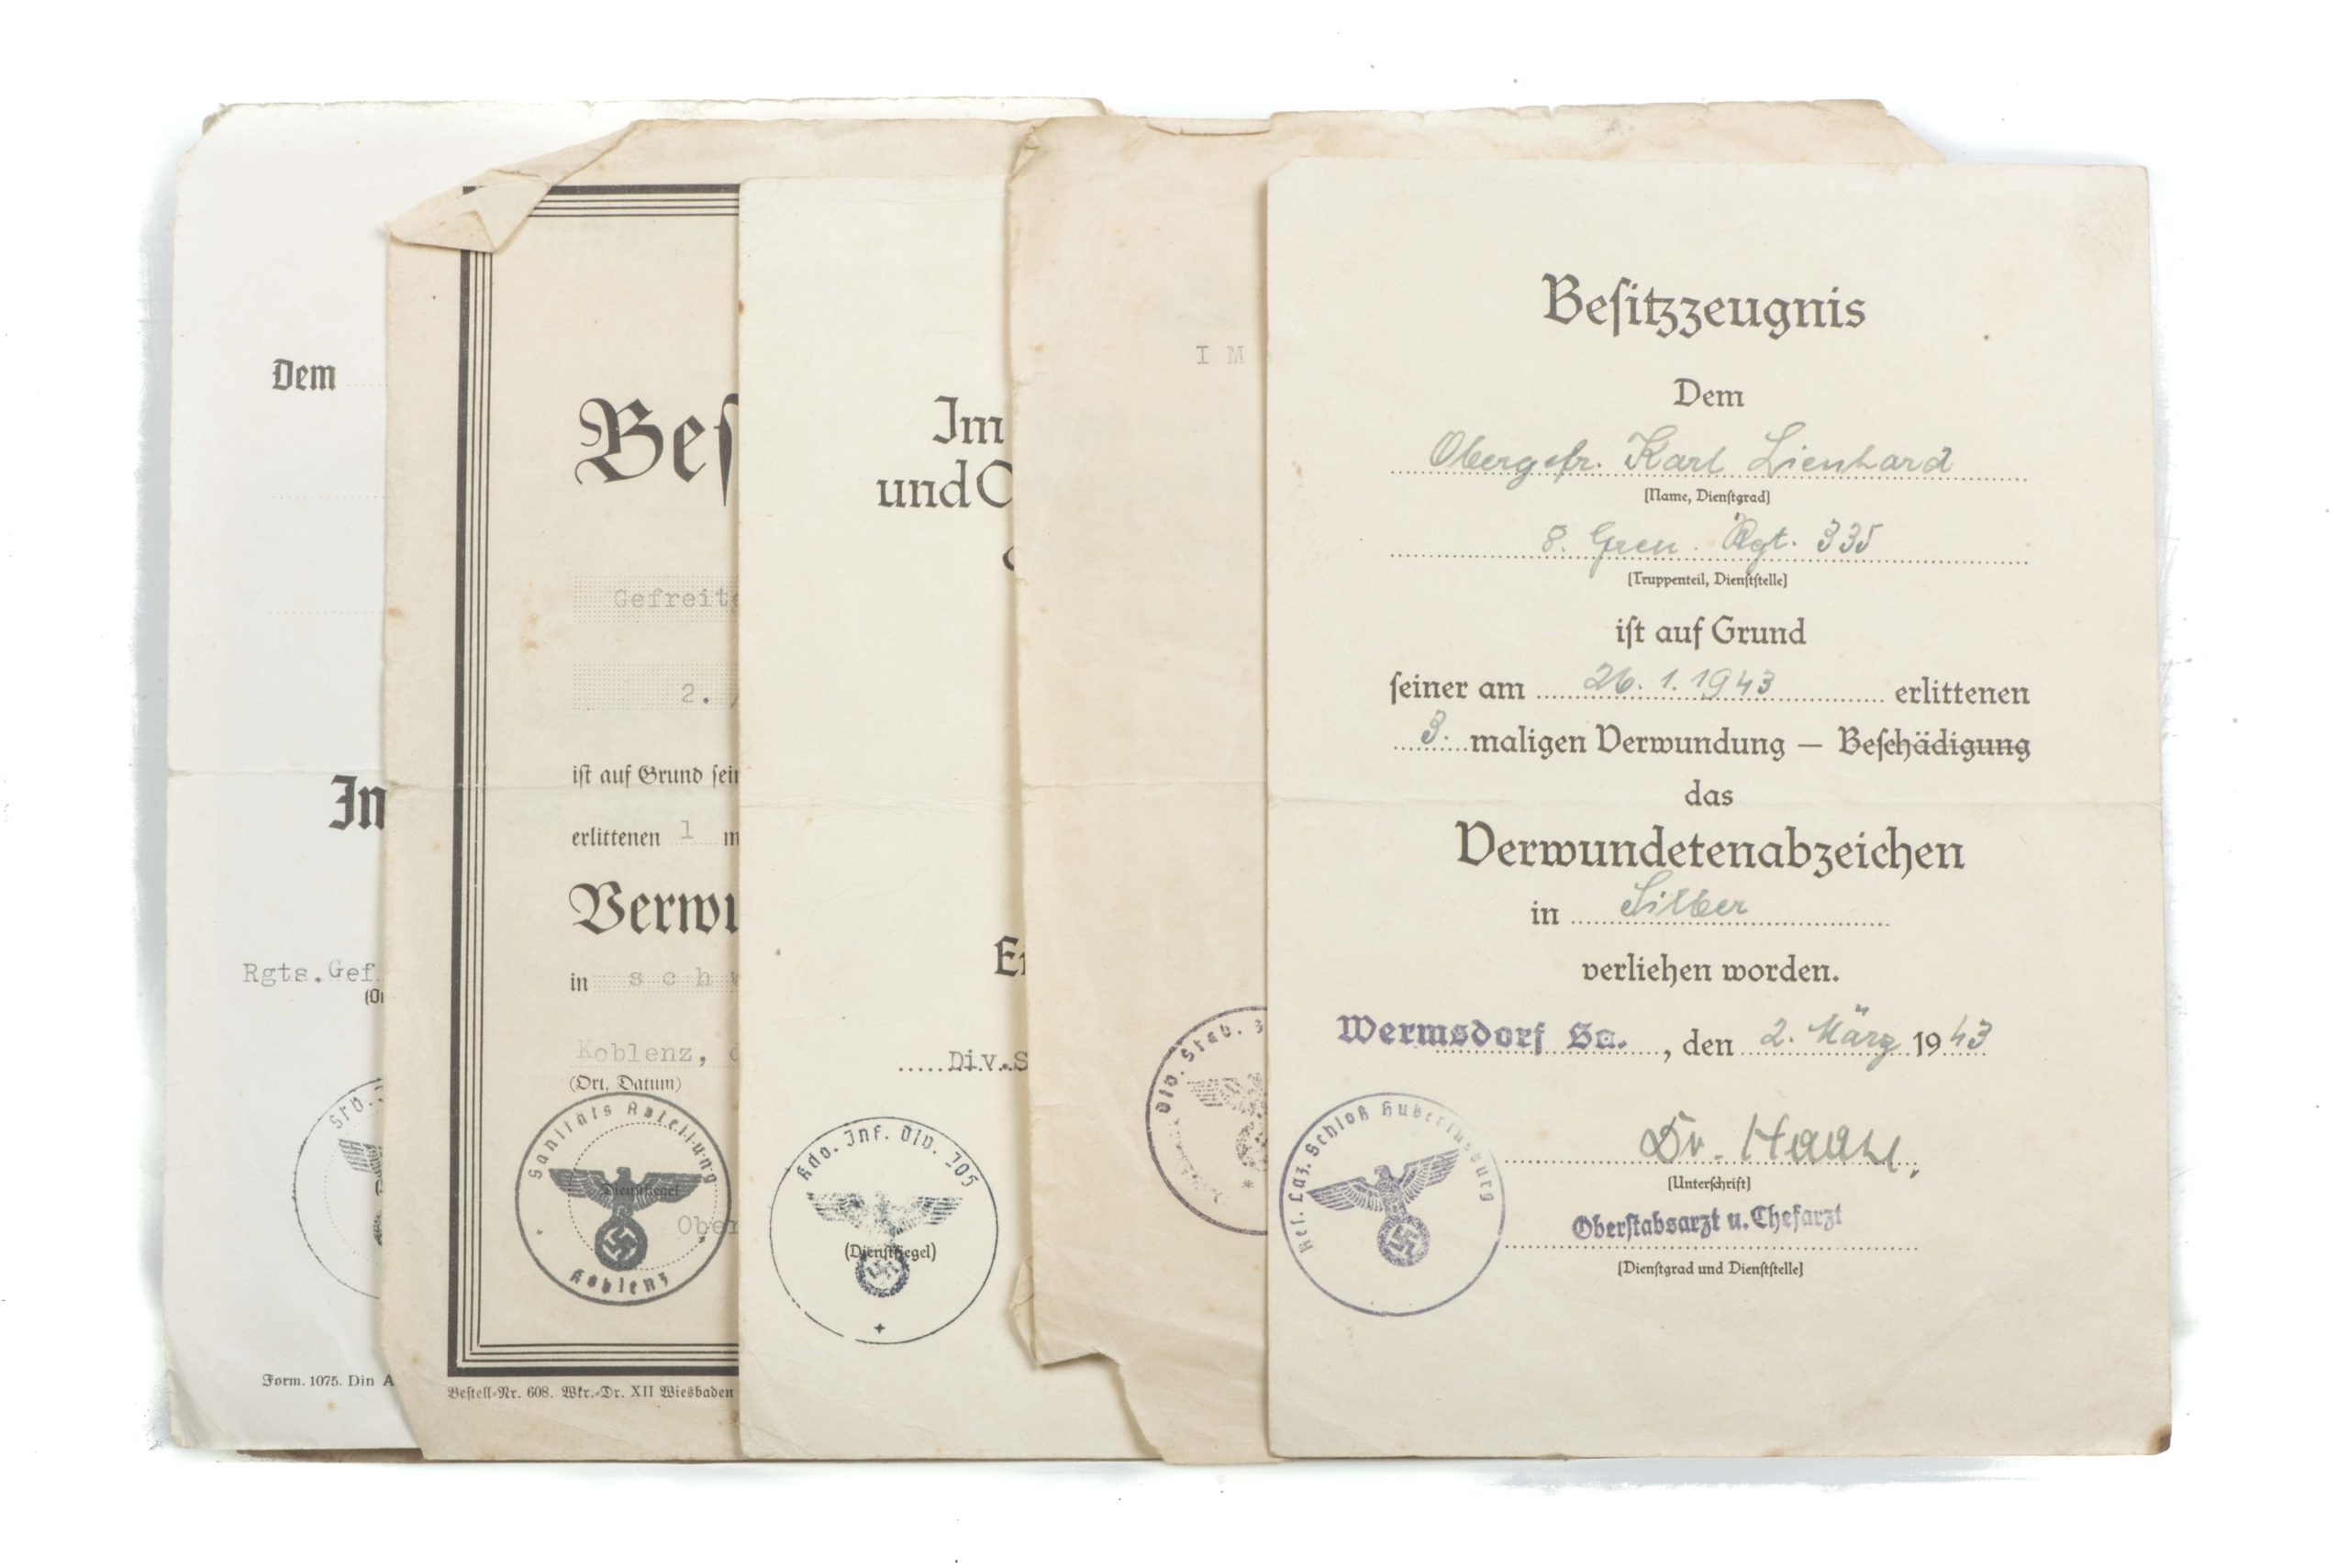 Dem
In
Rgts.Gef
Form. 1075. Din A
Beſ
Gefreite
2.
iſt auf Grund ſein
erlittenen 1 m
Verwu
in schw
Koblenz, d
(Ort, Datum)
Sanitäts Abteilung
Dienſtſiegel
Ober
Koblenz
Beſtell-Nr. 608. Wkr.-Dr. XII Wiesbaden
Im
und O
Er
Div.S
Kdo. Inf. Div. 205
(Dienſtſiegel)
I M
Div. Stab. 3
Beſitzzeugnis
Dem
Obergefr. Karl Lienhard
(Name, Dienſtgrad)
8. Gren. Rgt. 335
(Truppenteil, Dienſtſtelle)
iſt auf Grund
ſeiner am 26.1.1943 erlittenen
3. maligen Verwundung — Beſchädigung
das
Verwundetenabzeichen
in Silber
verliehen worden.
Wermsdorf Sa., den 2. März 1943
Reſ. Laz. Schloß Hubertusburg
Dr.
(Unterſchrift)
Oberſtabsarzt u. Chefarzt
(Dienſtgrad und Dienſtſtelle)